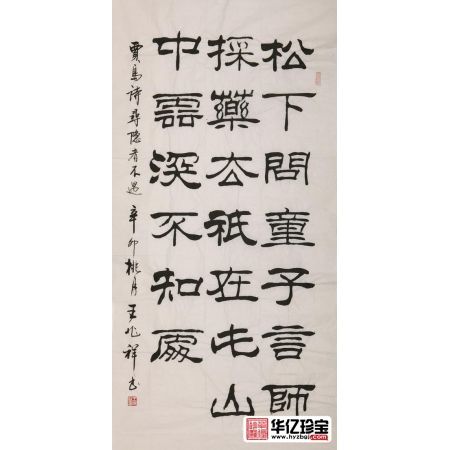 松下問童子言師
採藥去祇在此山
中雲深不知處
賈島詩尋隱者不遇 辛卯桃月 王兆祥書
华亿珍宝